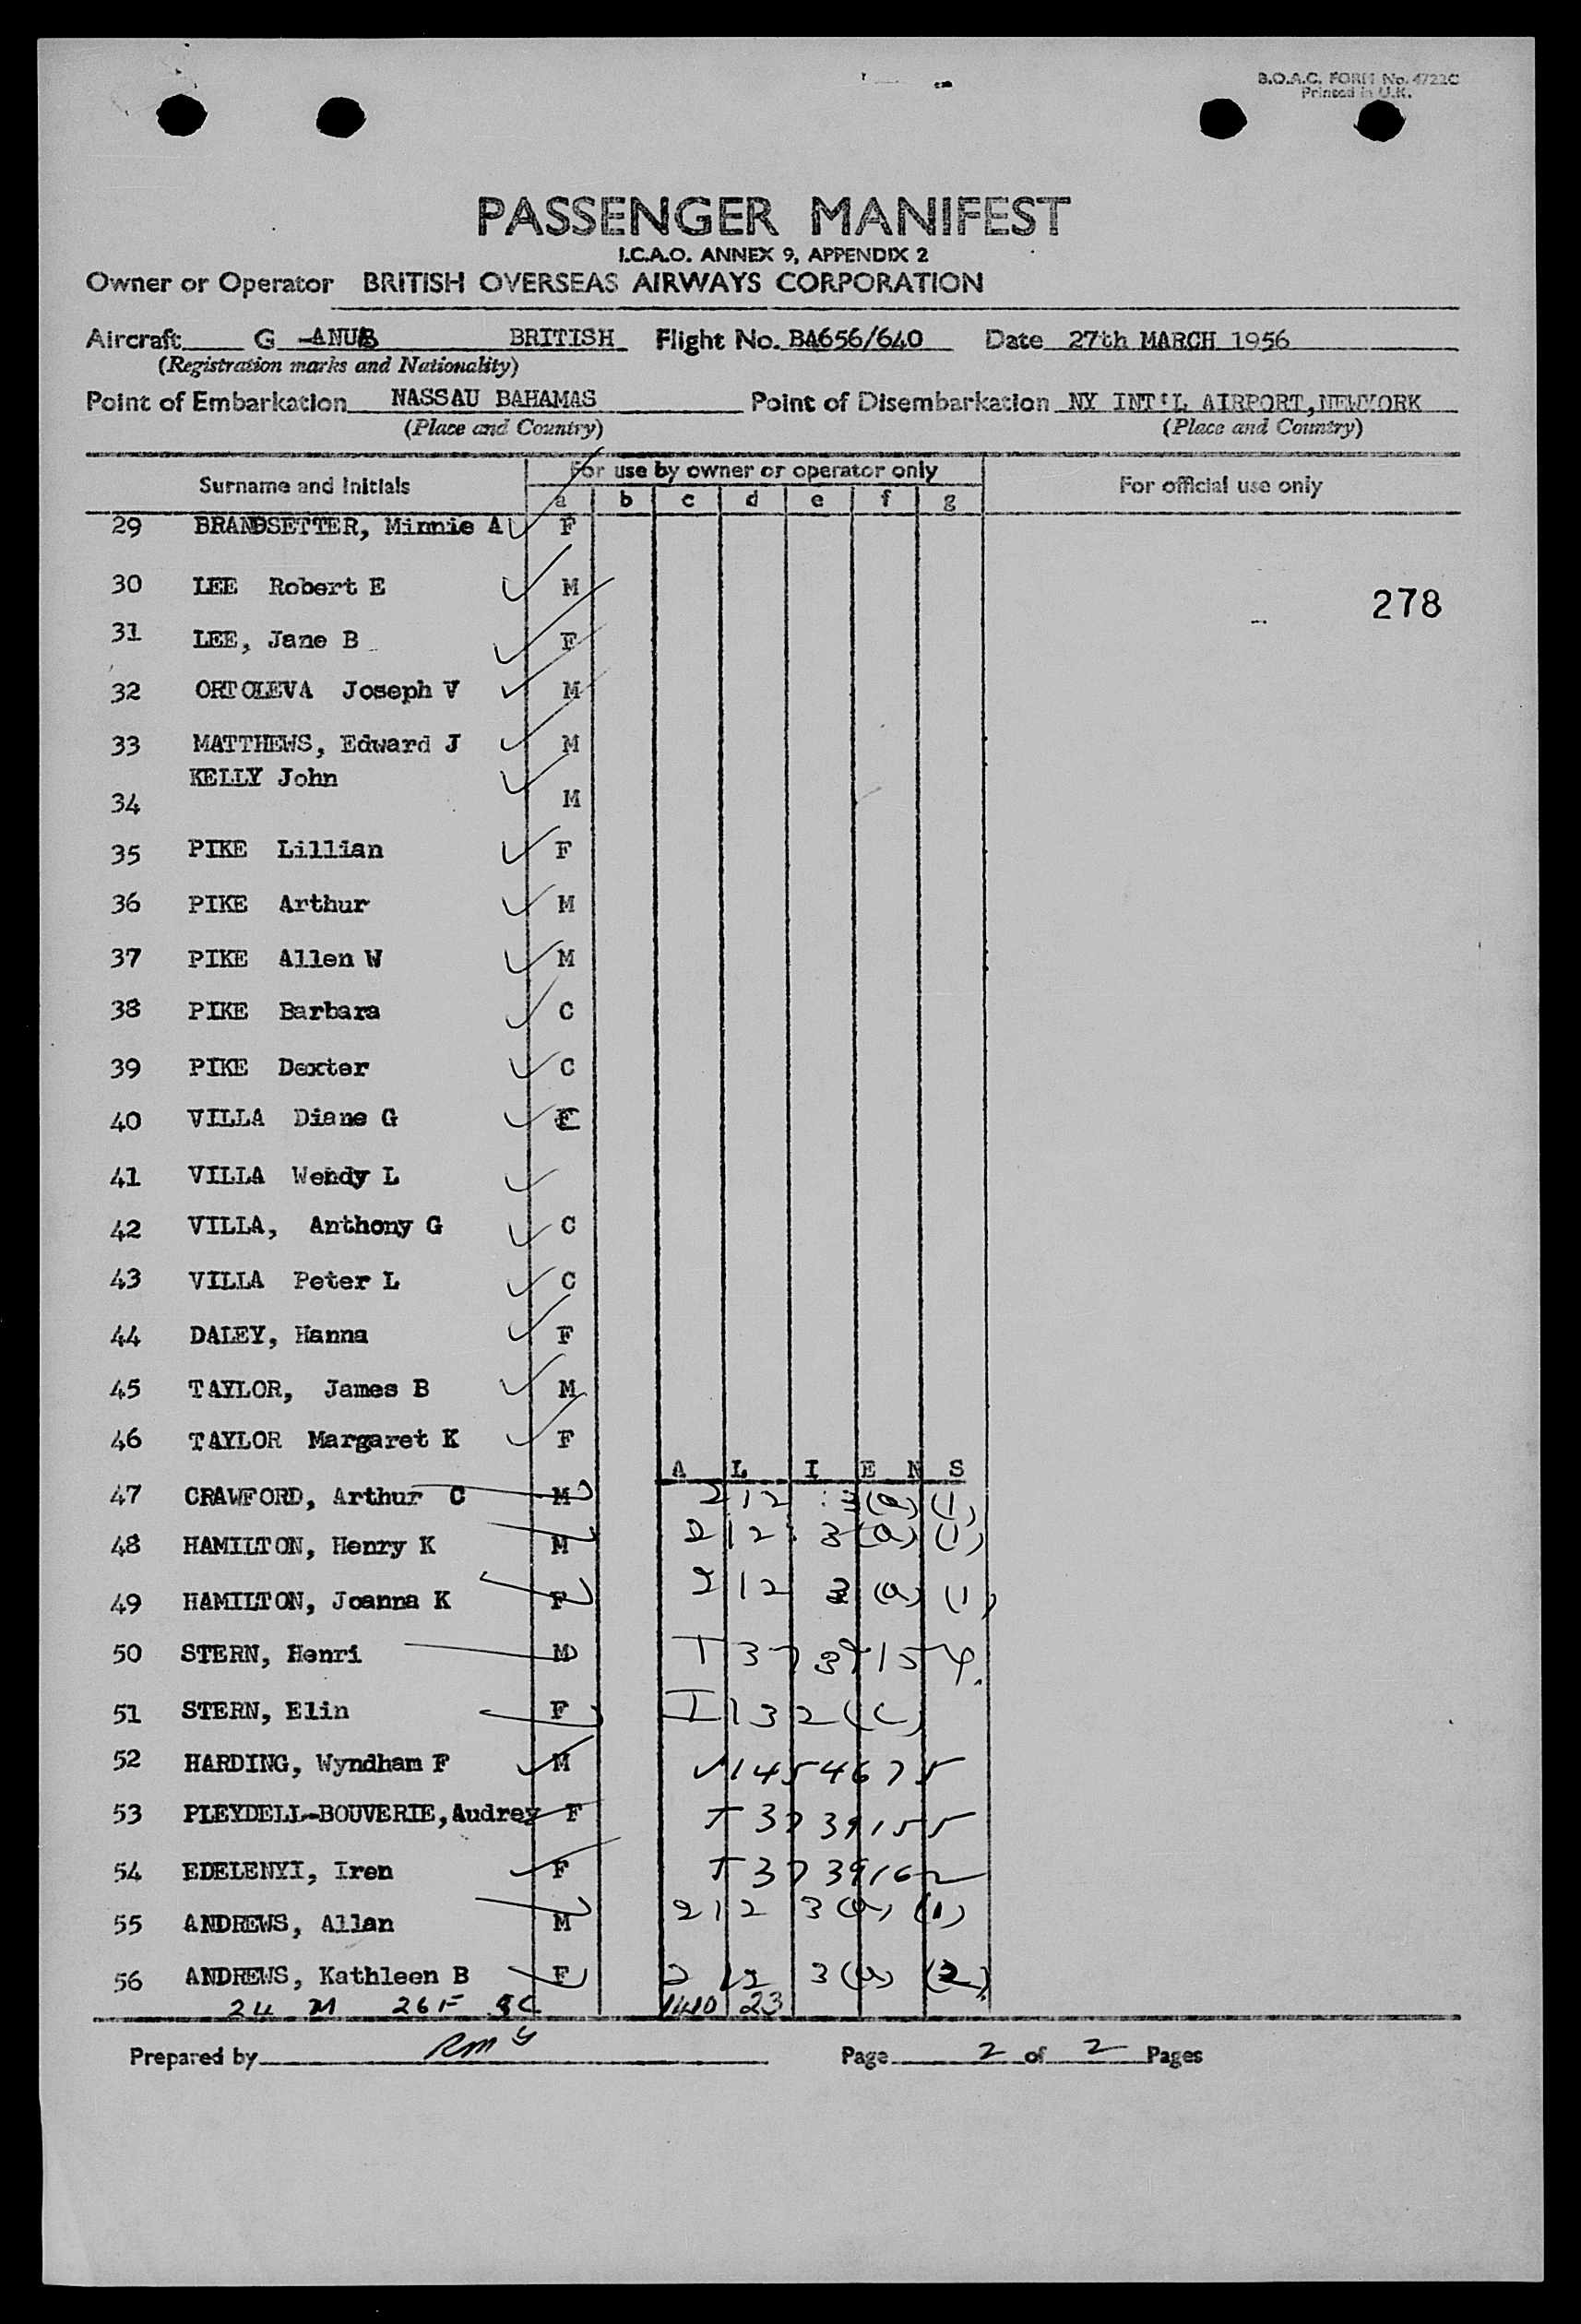 B.O.A.C. FORM No. 4722C
Printed in U.K.
PASSENGER MANIFEST
I.C.A.O. ANNEX 9, APPENDIX 2
Owner or Operator BRITISH OVERSEAS AIRWAYS CORPORATION
Aircraft G -ANUB BRITISH Flight No. BA656/640 Date 27th MARCH 1956
(Registration marks and Nationality)
Point of Embarkation NASSAU BAHAMAS Point of Disembarkation NY INT'L AIRPORT,NEWYORK
(Place and Country) (Place and Country)
Surname and Initials For use by owner or operator only For official use only
a b c d e f g
29 BRANDSETTER, Minnie A F
30 LEE Robert E M
278
31 LEE, Jane B F
32 ORTOLEVA Joseph V M
33 MATTHEWS, Edward J M
34 KELLY John M
35 PIKE Lillian F
36 PIKE Arthur M
37 PIKE Allen W M
38 PIKE Barbara C
39 PIKE Dexter C
40 VILLA Diane G
41 VILLA Wendy L
42 VILLA, Anthony G C
43 VILLA Peter L C
44 DALEY, Hanna F
45 TAYLOR, James B M
46 TAYLOR Margaret K F
A L I E N S
47 CRAWFORD, Arthur C M 212 : 3 (a) (1)
48 HAMILTON, Henry K M 212 : 3 (a) (1)
49 HAMILTON, Joanna K F 212 3 (a) (1)
50 STERN, Henri M T 3739154
51 STERN, Elin F I 132 (c)
52 HARDING, Wyndham F M V1454675
53 PLEYDELL-BOUVERIE, Audrey F T 3739155
54 EDELENYI, Iren F T 3739162
55 ANDREWS, Allan M 212 3 (a) (1)
56 ANDREWS, Kathleen B F 212 3 (a) (2)
24 M 26 F 8C 1410 23
Prepared by Page 2 of 2 Pages